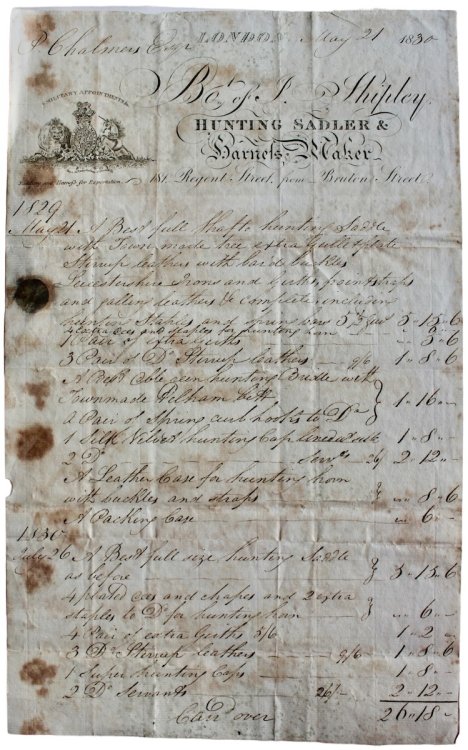 LONDON May 21 1830
P Chalmers Esqr
Bot. of J. Shipley.
MILITARY APPOINTMENTS
HUNTING SADLER &
Harness Maker
Sadlery and Harness for Exportation.
181. Regent Street, from Bruton Street.
1829
May 21 A Best full shaft hunting Saddle
with Town made tree extra Gullet plate
Stirrup leathers with barde buckles
Leicestershire Irons and Girths, point straps
and galling leathers & complete including
hunting Staples and spring bars 5½ Gns 5 " 15 " 6
extra dees and staples for hunting horn " 6 "
1 Pair of extra Girths " 5 " 6
3 Pair of Do Stirrup leathers 9/6 1 " 8 " 6
A Best hunting Bridle with
Townmade Pelham bitt
a Pair of Spring curb hooks to Do 1 " 16 "
1 Silk Velvet hunting Cap lined with silk 1 " 8 "
2 Do Servts 26/ 2 " 12 "
A Leather Case for hunting horn
with buckles and straps " 8 " 6
A Packing Case " 6 "
1830
26 A Best full size hunting Saddle
as before 5 " 15 " 6
4 plated dees and chapes and 2 extra
staples to Do for hunting horn " 6 "
4 Pair of extra Girths 5/6 1 " 2 "
3 Do Stirrup Leathers 9/6 1 " 8 " 6
1 Super hunting Cap 1 " 8 "
2 Do Servants 26/- 2 " 12 "
Card over 26 " 18 "